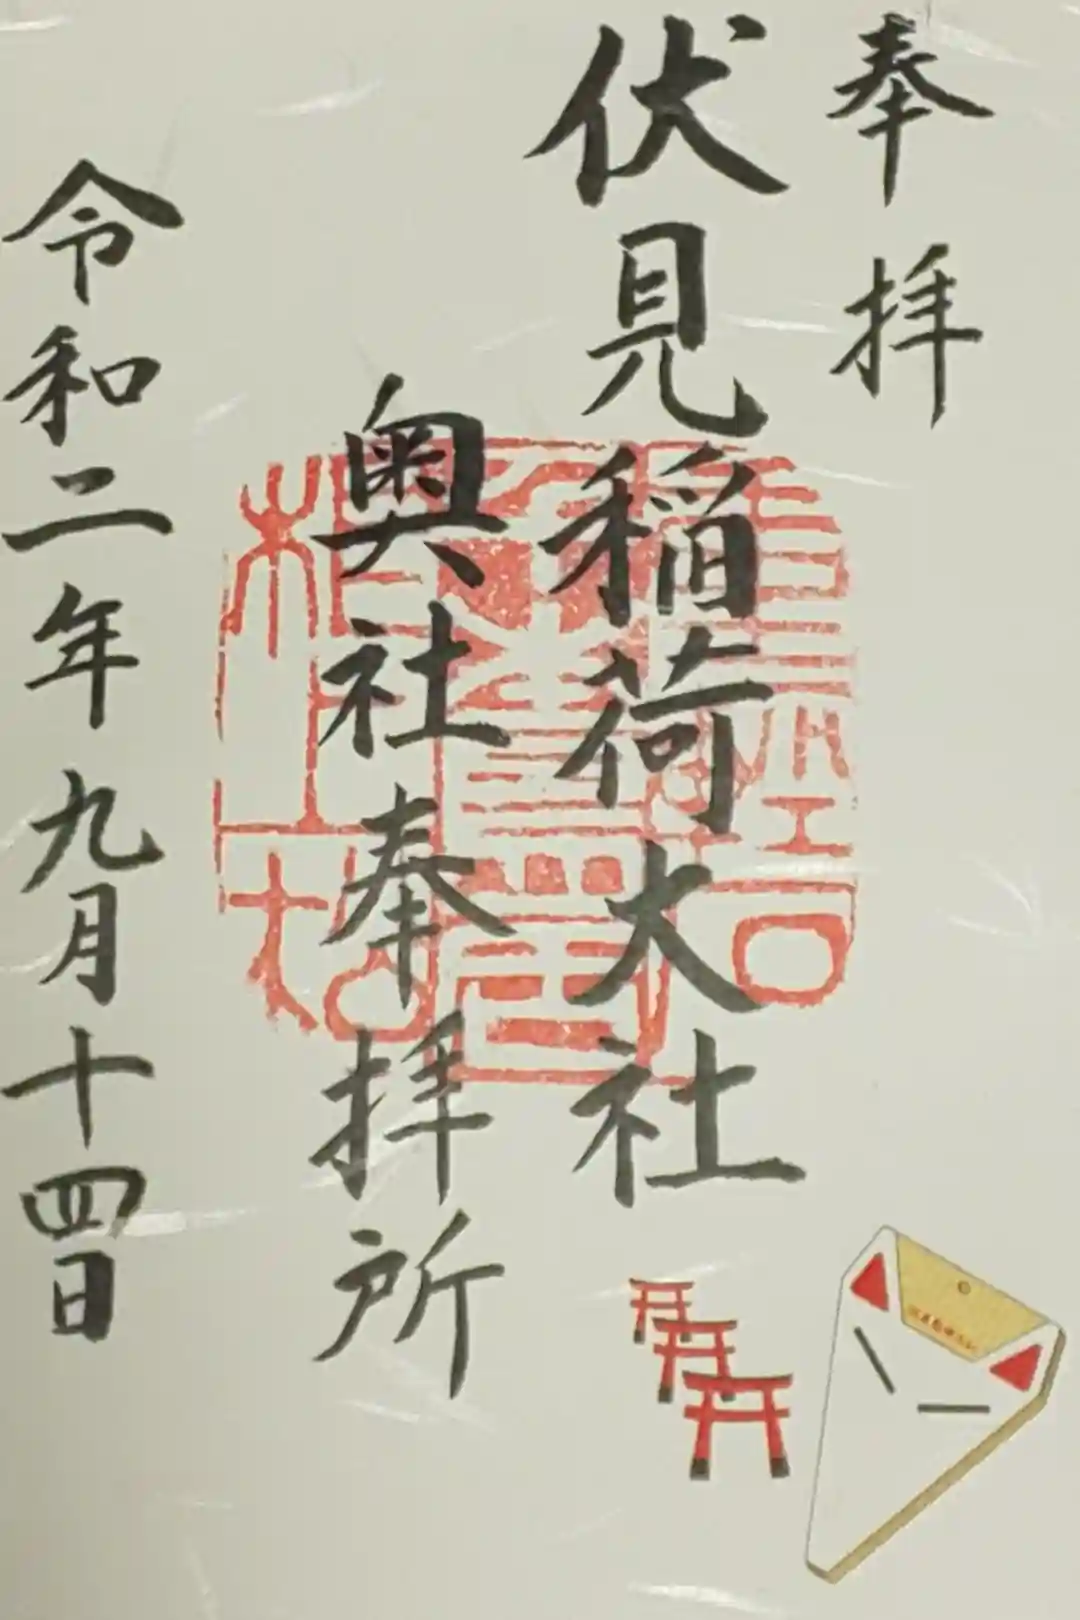 奉拝
伏見稲荷大社
奥社奉拝所
令和二年九月十四日